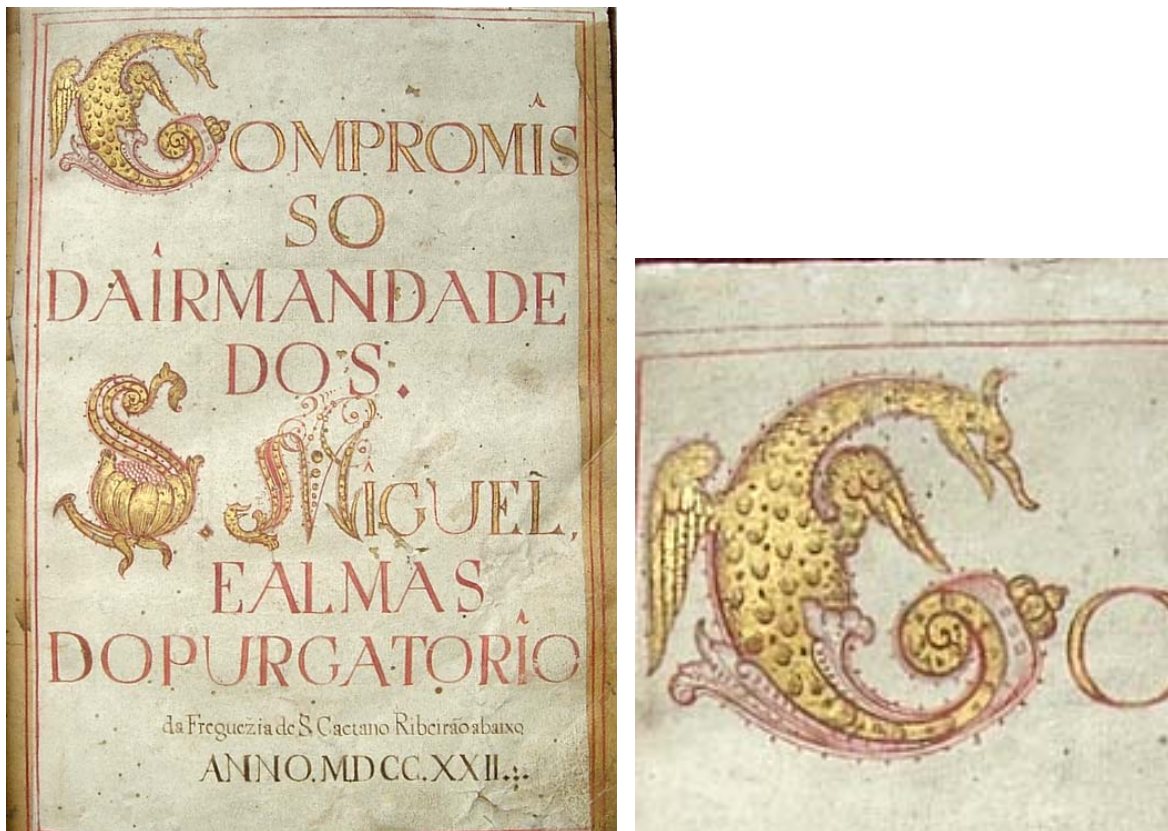 COMPROMIS
SO
DAIRMANDADE
DO S.
S. MIGUEL,
EALMAS
DOPURGATORIO
da Freguezia de S. Caetano Ribeirão abaixo
ANNO. MDCC. XXII.
CO